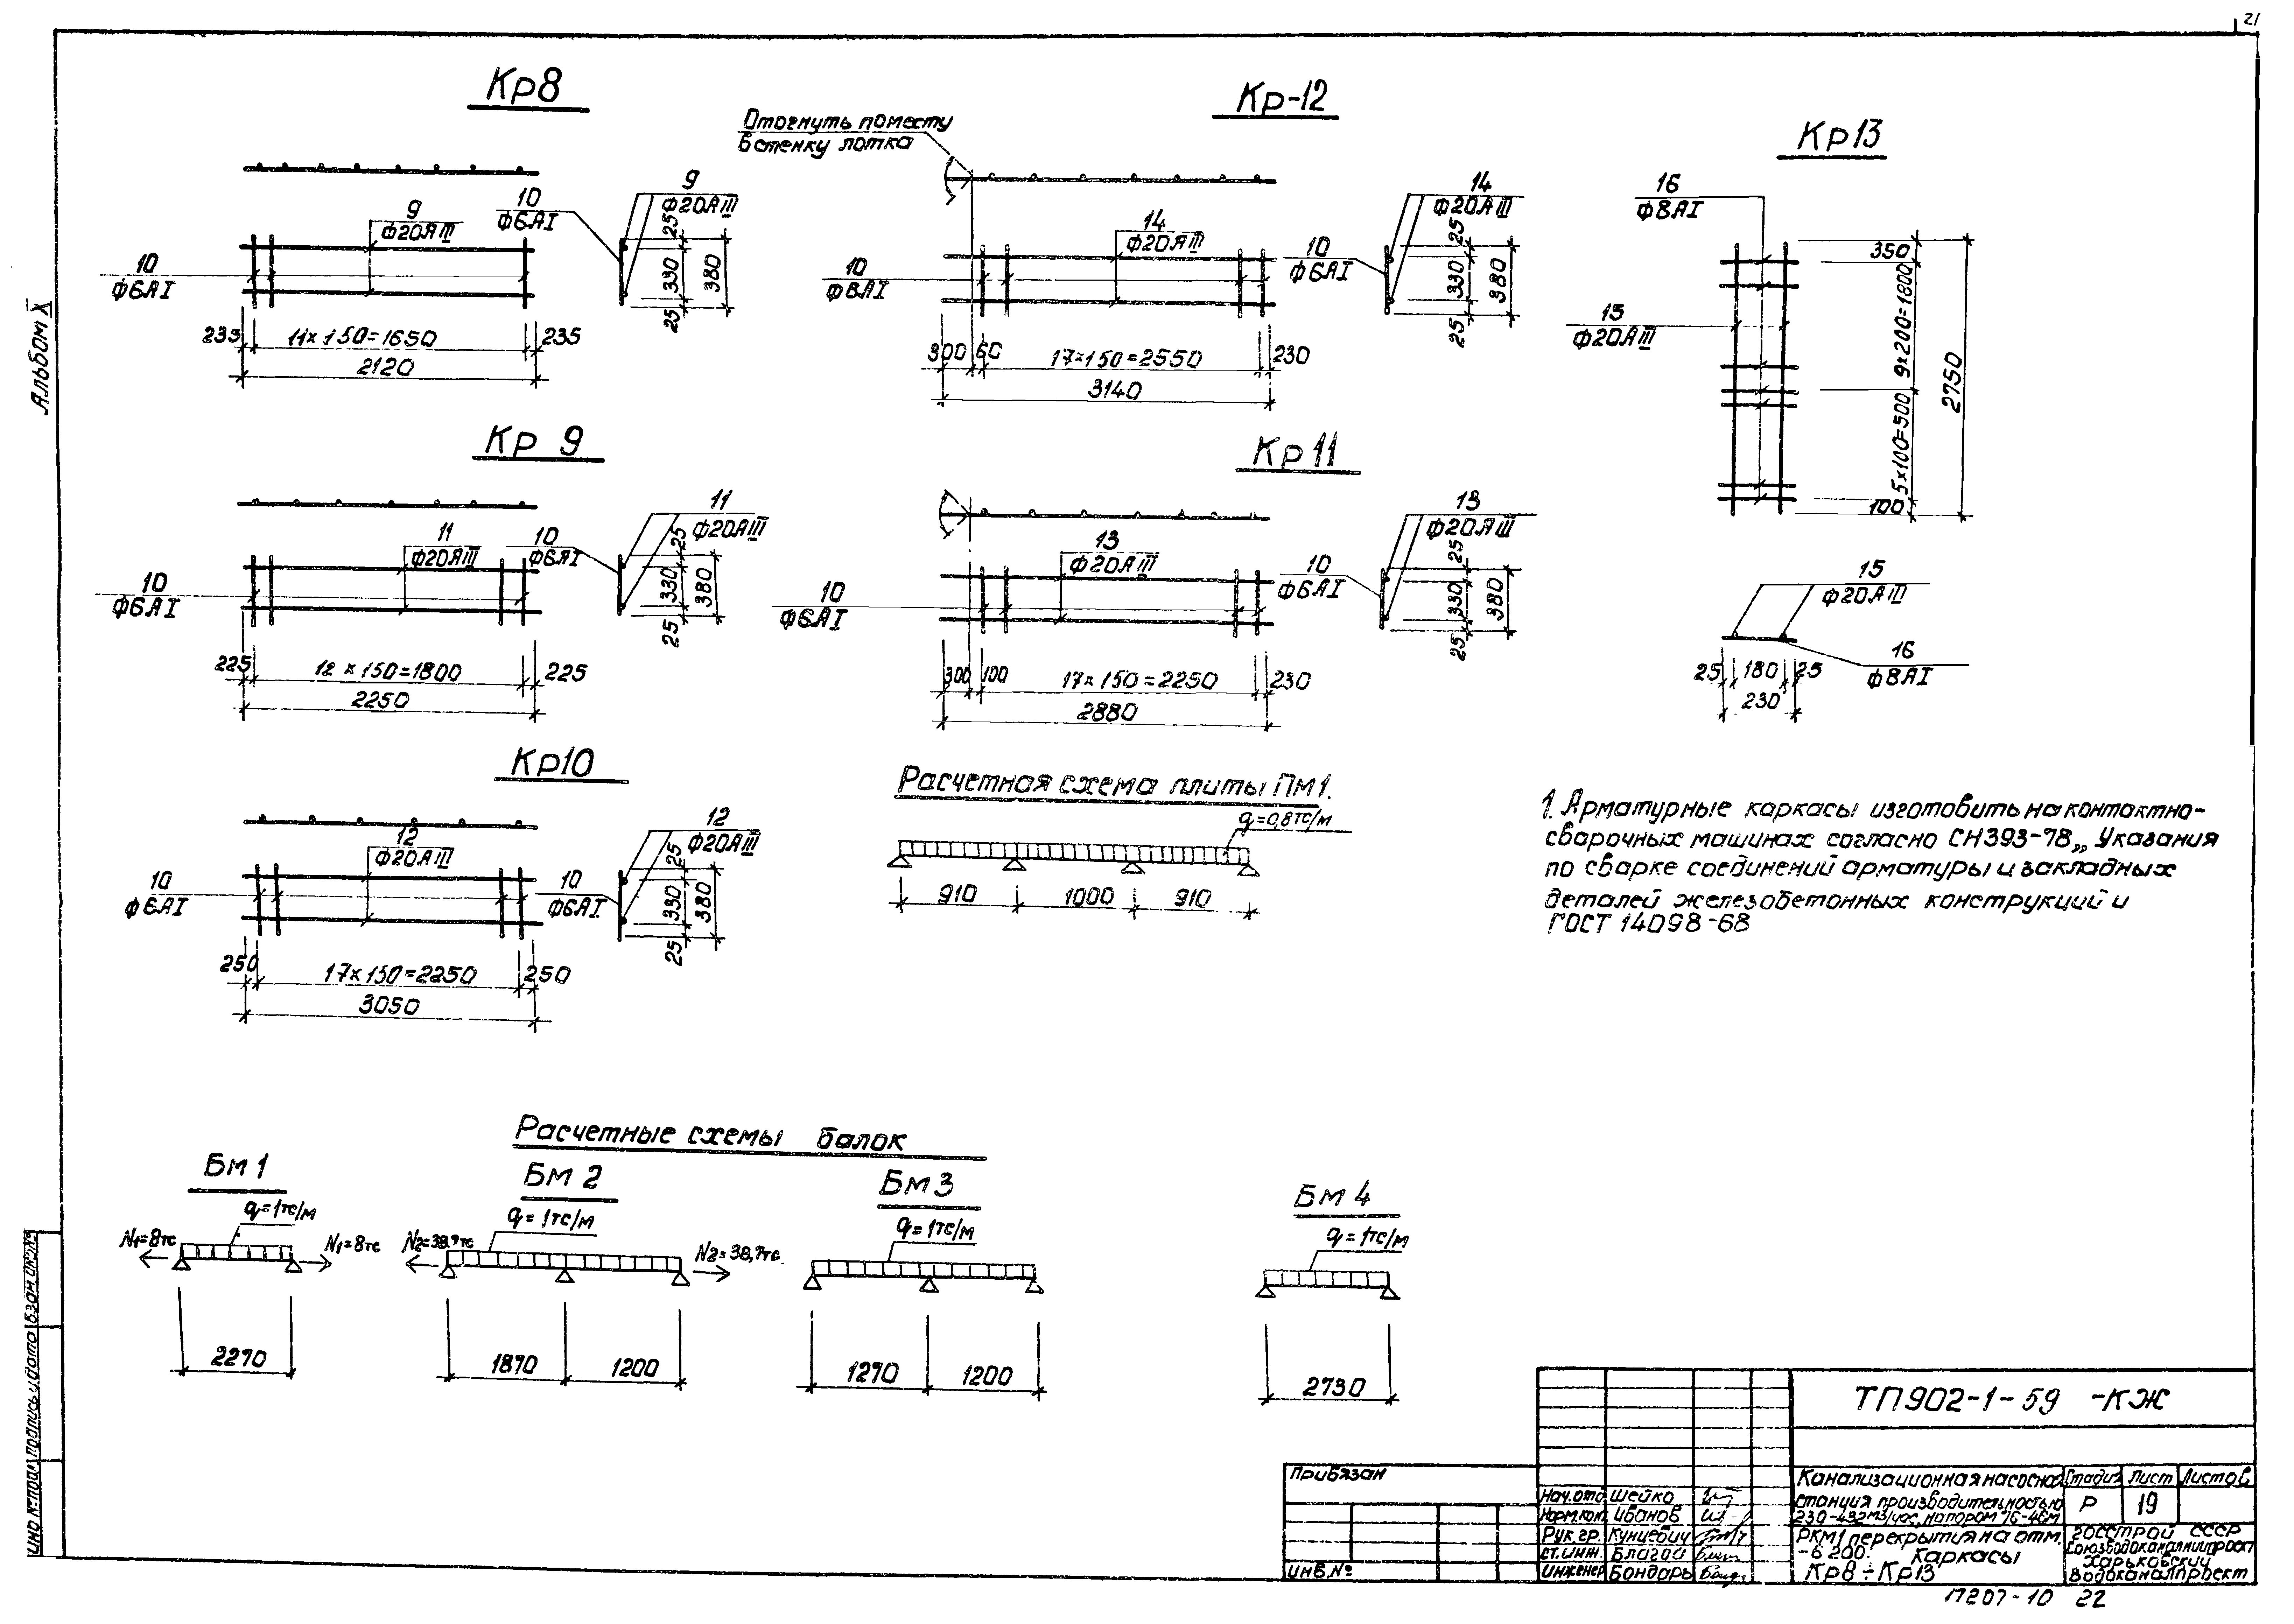 21
Альбом X
Кр8
9
ф20АIII
10
ф6АI
10
ф6АI
9
ф20АIII
25
330
380
25
235
11×150=1650
235
2120
Кр-12
Отогнуть поместу
в стенку лотка
14
ф20АIII
10
ф6АI
10
ф6АI
14
ф20АIII
25
330
380
25
300
60
17×150=2550
230
3140
Кр13
16
ф8АI
15
ф20АIII
350
9×200=1800
5×100=500
100
2750
15
ф20АIII
16
ф8АI
25
180
25
230
Кр 9
11
ф20АIII
10
ф6АI
10
ф6АI
11
ф20АIII
25
330
380
25
225
12×150=1800
225
2250
Кр11
13
ф20АIII
10
ф6АI
10
ф6АI
13
ф20АIII
25
330
380
25
300
100
17×150=2250
230
2880
Кр10
12
ф20АIII
10
ф6АI
10
ф6АI
12
ф20АIII
25
330
380
25
250
17×150=2250
250
3050
Расчетная схема плиты ПМ1.
q=0,8тс/м
910
1000
910
1. Арматурные каркасы изготовить на контактно-
сварочных машинах согласно СН393-78 „Указания
по сварке соединений арматуры и закладных
деталей железобетонных конструкций и
ГОСТ 14098-68
Расчетные схемы балок
Бм 1
q=1тс/м
N1=8тс
N1=8тс
2270
Бм 2
q=1тс/м
N2=38,7тс
N2=38,7тс
1870
1200
Бм 3
q=1тс/м
1270
1200
Бм 4
q=1тс/м
2730
ТП902-1-59 -КЖ
Привязан
Инв.№
Нач.отд Шейко
Норм.кон. Иванов
Рук.гр. Кунцевич
ст.инж. Благой
инженер Бондарь
Канализационная насосная
станция производительностью
230-432м3/час, напором 16-46м
Стадия
Лист
Листов
Р
19
РКМ1 перекрытия на отм.
-6200. Каркасы
Кр8÷Кр13
Госстрой СССР
Союзводоканалниипроект
Харьковский
Водоканалпроект
Инв №подл
Подпись и дата
Взам инв№
П207-10 22